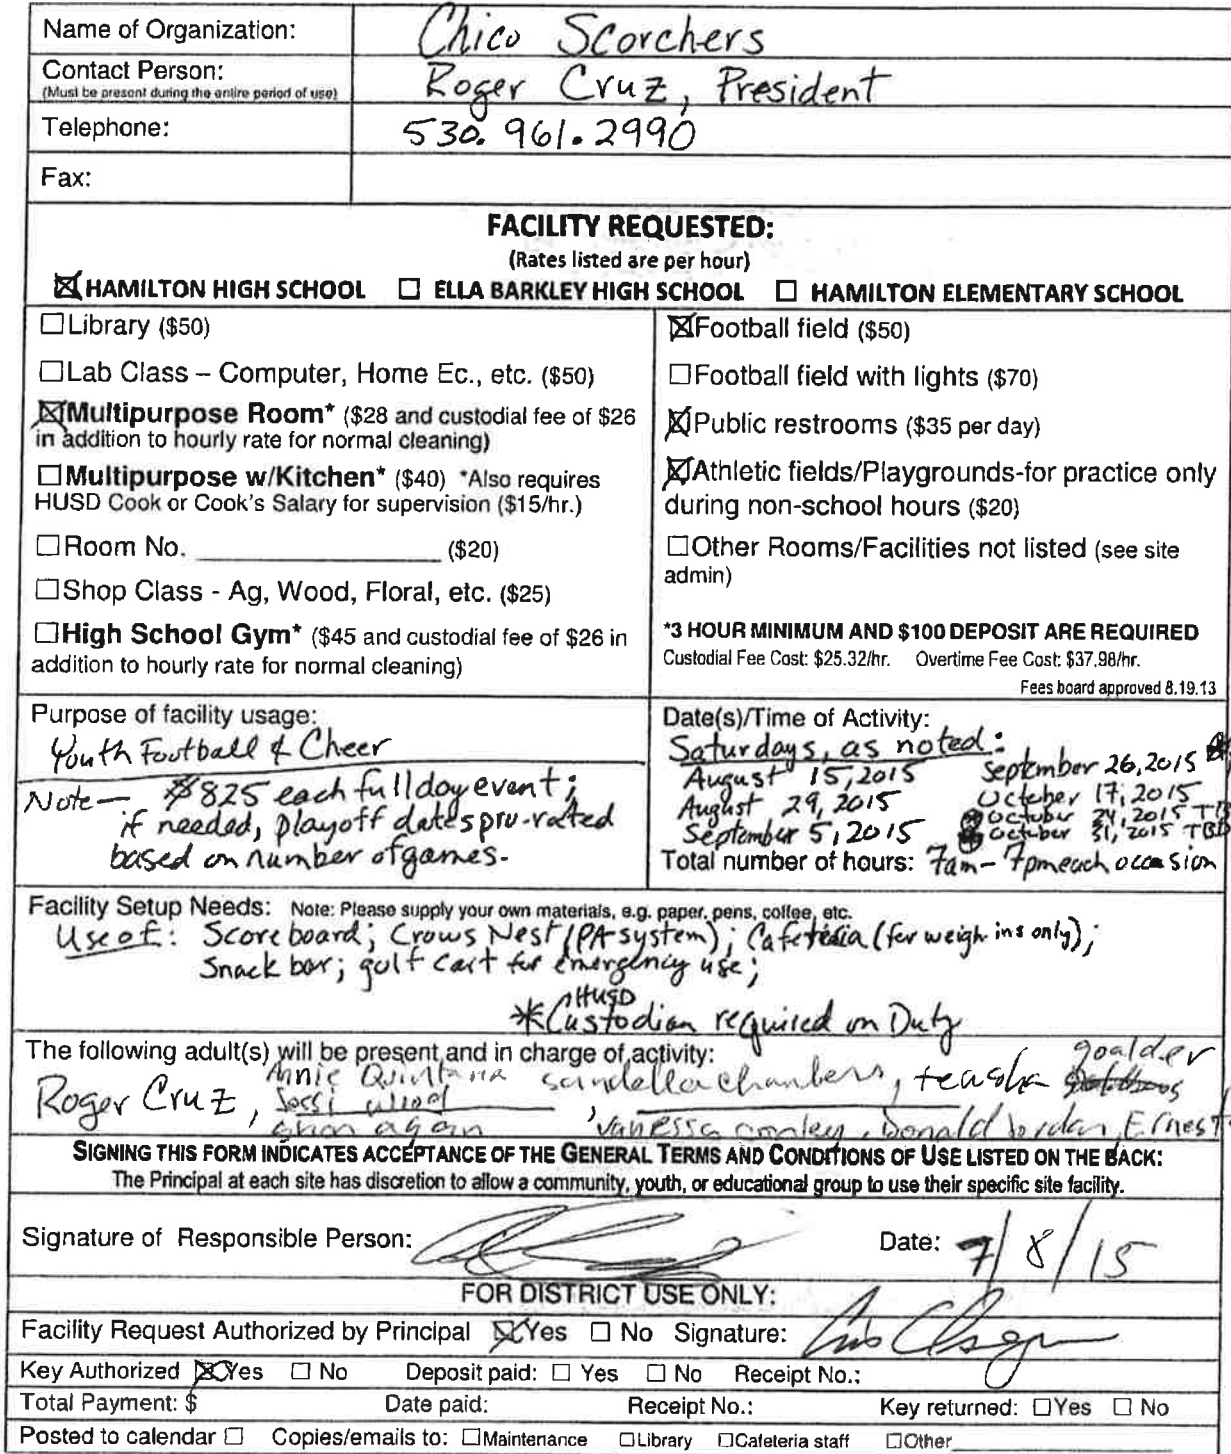 Name of Organization: Chico Scorchers
Contact Person: Roger Cruz, President
(Must be present during the entire period of use)
Telephone: 530.961.2990
Fax:
FACILITY REQUESTED:
(Rates listed are per hour)
☒ HAMILTON HIGH SCHOOL ☐ ELLA BARKLEY HIGH SCHOOL ☐ HAMILTON ELEMENTARY SCHOOL
☐ Library ($50)
☐ Lab Class – Computer, Home Ec., etc. ($50)
☒ Multipurpose Room* ($28 and custodial fee of $26
in addition to hourly rate for normal cleaning)
☐ Multipurpose w/Kitchen* ($40) *Also requires
HUSD Cook or Cook's Salary for supervision ($15/hr.)
☐ Room No. ($20)
☐ Shop Class - Ag, Wood, Floral, etc. ($25)
☐ High School Gym* ($45 and custodial fee of $26 in
addition to hourly rate for normal cleaning)
☒ Football field ($50)
☐ Football field with lights ($70)
☒ Public restrooms ($35 per day)
☒ Athletic fields/Playgrounds-for practice only
during non-school hours ($20)
☐ Other Rooms/Facilities not listed (see site
admin)
*3 HOUR MINIMUM AND $100 DEPOSIT ARE REQUIRED
Custodial Fee Cost: $25.32/hr. Overtime Fee Cost: $37.98/hr.
Fees board approved 8.19.13
Purpose of facility usage:
Youth Football & Cheer
Note— $825 each full day event;
if needed, playoff dates pro-rated
based on number of games.
Date(s)/Time of Activity:
Saturdays, as noted:
August 15, 2015
August 29, 2015
September 5, 2015
September 26, 2015
October 17, 2015
October 24, 2015 TB
October 31, 2015 TBD
Total number of hours: 7am - 7pm each occasion
Facility Setup Needs: Note: Please supply your own materials, e.g. paper, pens, coffee, etc.
Use of: Scoreboard; Crows Nest (PA system); Cafeteria (for weigh ins only);
Snack bar; golf cart for emergency use;
*HUSD Custodian required on Duty
The following adult(s) will be present and in charge of activity:
Roger Cruz, Annie Quintana
sandella chambers, teasha goalder
vanessa conley, Donald Jordan, Ernest
SIGNING THIS FORM INDICATES ACCEPTANCE OF THE GENERAL TERMS AND CONDITIONS OF USE LISTED ON THE BACK:
The Principal at each site has discretion to allow a community, youth, or educational group to use their specific site facility.
Signature of Responsible Person: Date: 7/8/15
FOR DISTRICT USE ONLY:
Facility Request Authorized by Principal ☒ Yes ☐ No Signature:
Key Authorized ☒ Yes ☐ No Deposit paid: ☐ Yes ☐ No Receipt No.:
Total Payment: $ Date paid: Receipt No.: Key returned: ☐ Yes ☐ No
Posted to calendar ☐ Copies/emails to: ☐ Maintenance ☐ Library ☐ Cafeteria staff ☐ Other